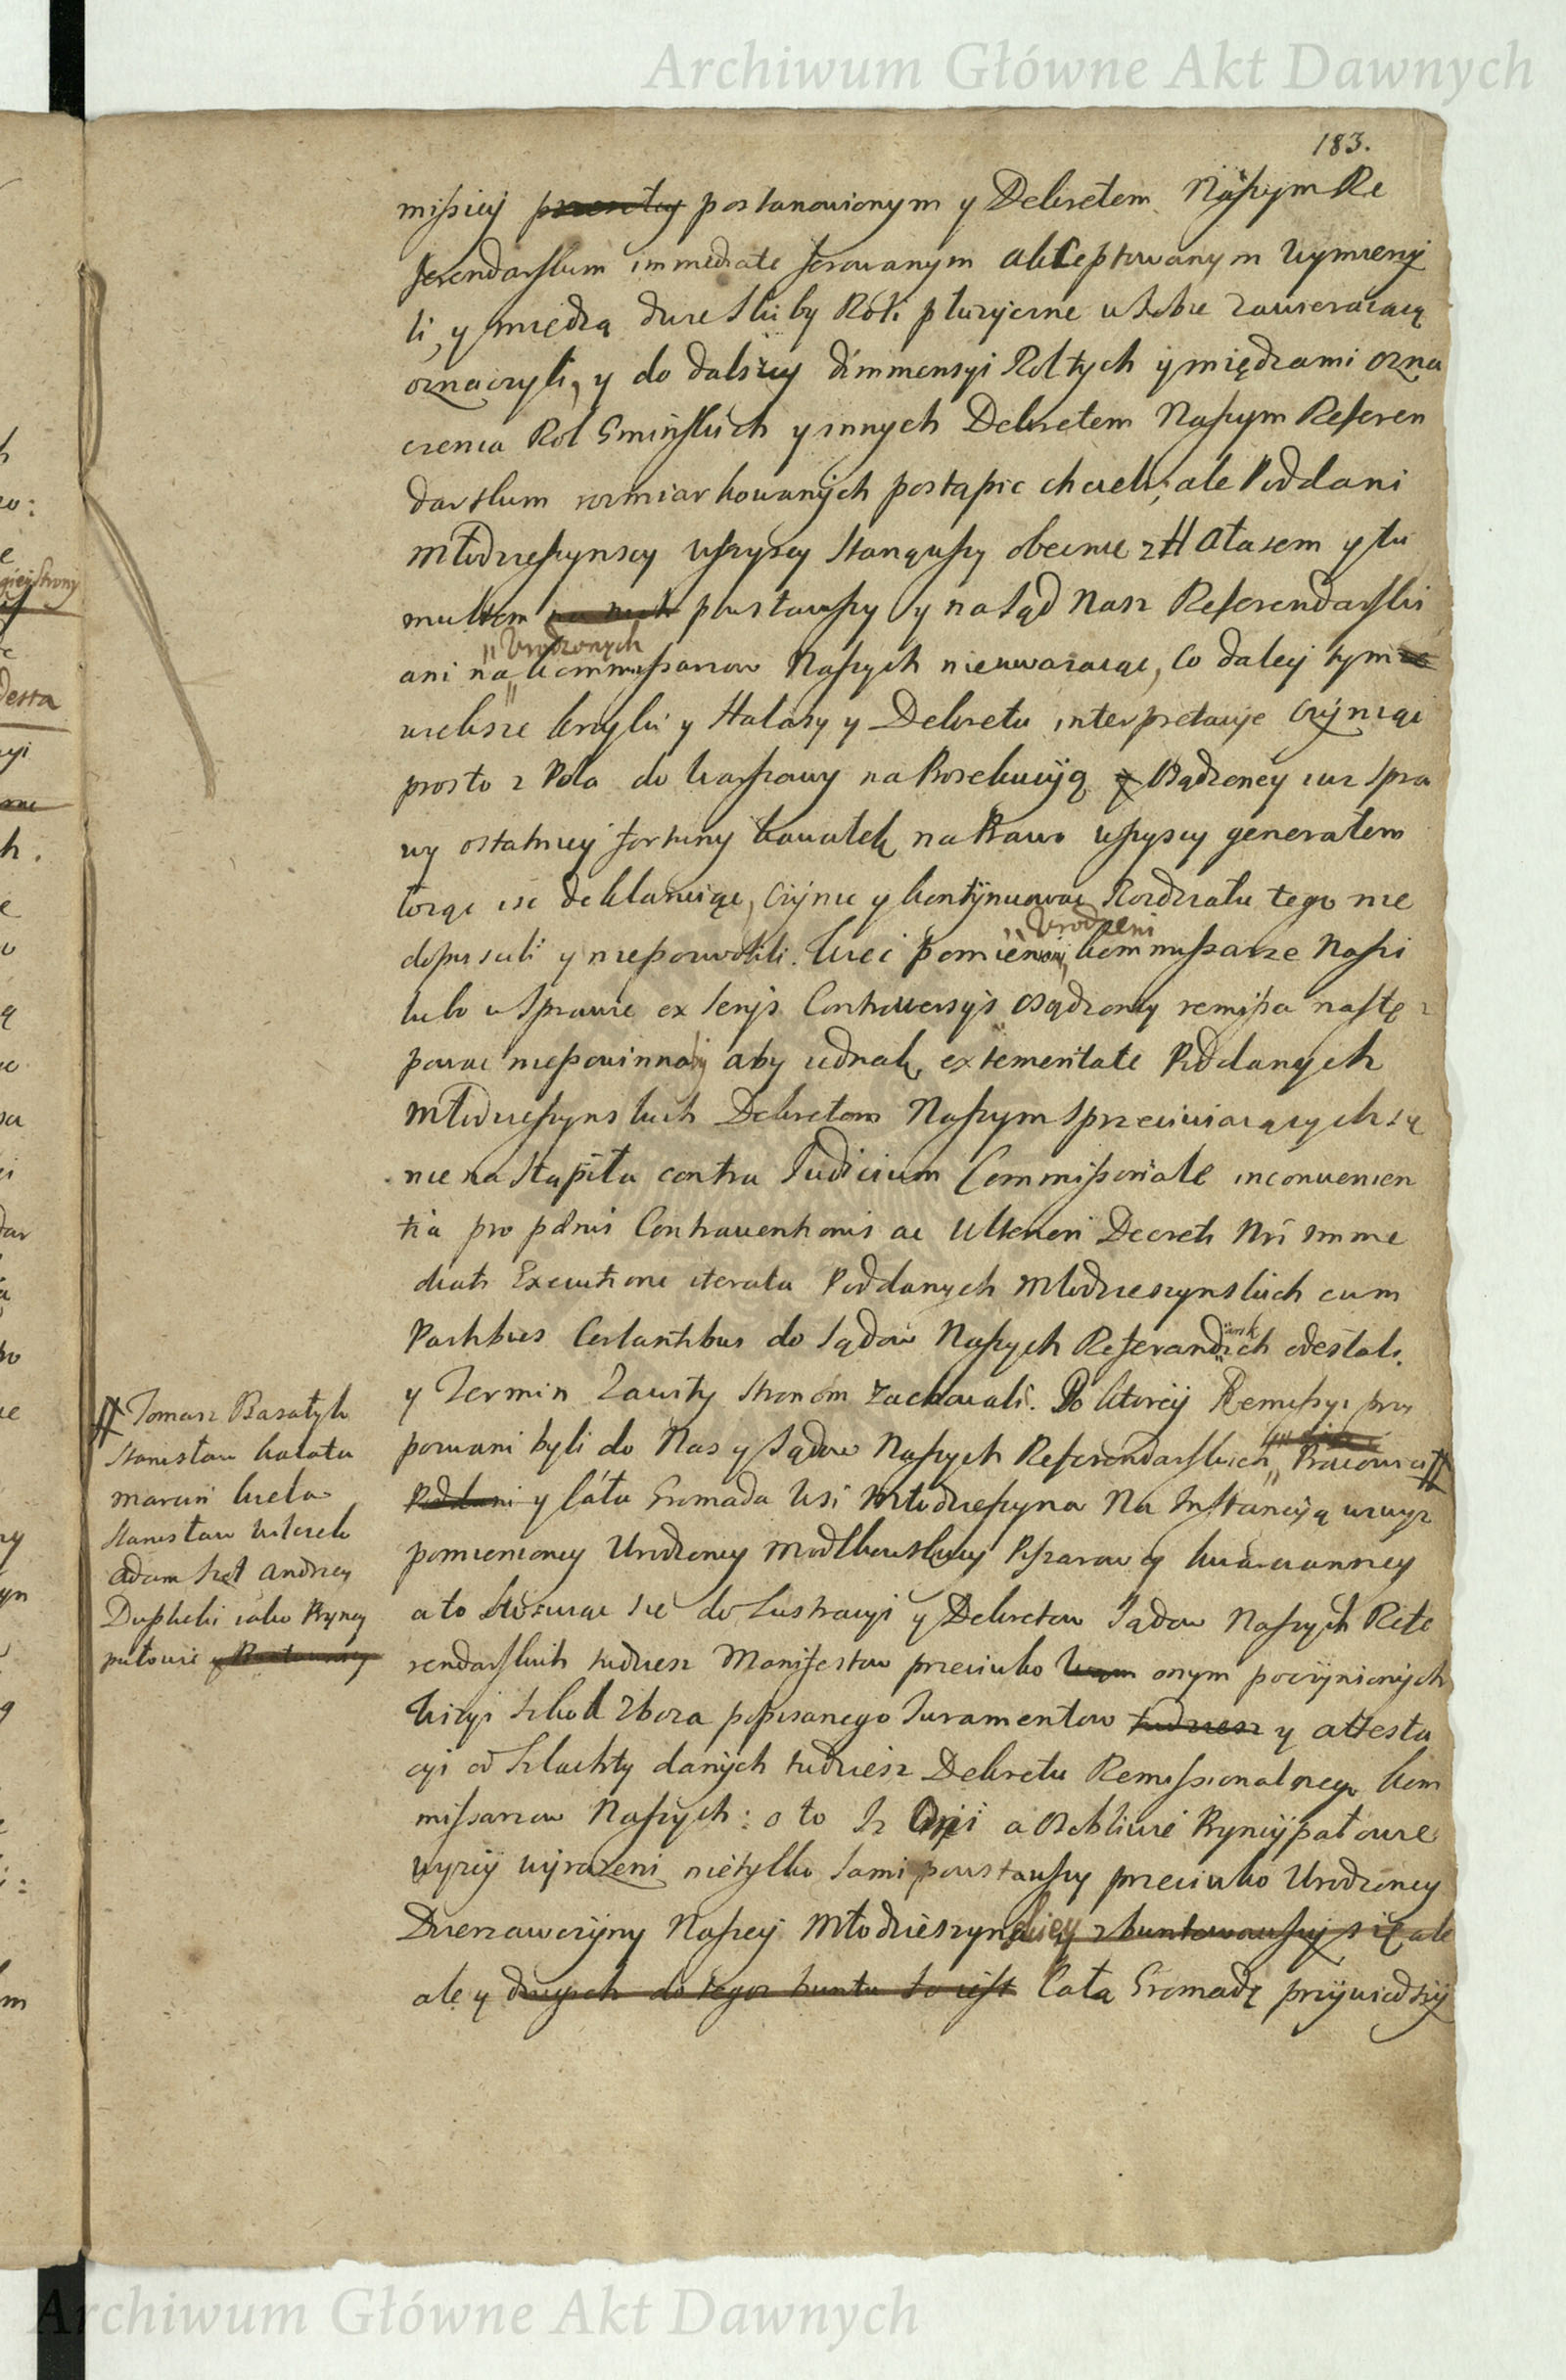 Archiwum Główne Akt Dawnych
183.
missiey przeszłey postanowionym y Dekretem Naszym Re
ferendarskum immediate ferowanym akceptowanym wymierzy
li, y miedzą dwie Skiby Roli płużyczne w sobie zawieraiącą
oznaczyli, y do dalszey dimmensyi Rol tych y międzami ozna
czenia Rol Gminskich y innych Dekretem Naszym Referen
darskim rozmiarkowanych postąpic chcieli; ale Poddani
Młodzieszynscy wszyscy stanąwszy obecnie z Hałasem y tu
multem na nich powstawszy y na Sąd Nasz Referendarski
"Urodzonych
ani na Kommissarzow Naszych nieuważaiąc, co daley tym
wieksze krzyki y Hałasy y Dekretu interpretacye czyniąc
prosto z Pola do Warszawy na Prosekucyją osądzoney iuz spra
wy ostatniey fortuny kawałek na Prawo wszyscy generałem
łożąc się deklaruiąc, czynic y kontynuowac Rozdziału tego nie
"Urodzeni
dopuscili y niepozwolili. Kiec pomienieni Kommissarze Nasi
lubo w Sprawie ex seriis Controversys osądzoney remissa nastę
powac niepowinna, aby iednak ex temeritate Poddanych
Młodzieszynskich Dekretom Naszym sprzeciwiaiących się
nie nastąpiła contra Judicium Commissoriale inconvenien
tia pro pœnis Contraventionis ac ulteriori Decreti Nri imme
diati Executione iterata Poddanych Młodzieszynskich cum
Partibus Certantibus do Sądow Naszych Referendarskich odesłali
y Termin Zawity stronom zachowali. Po ktorey Remissyi przy
pozwani byli do Nas y Sądow Naszych Referendarskich, Pracowici #
Poddani y cała Gromada Wsi Młodzieszyna Na Instancyją wzwyz
pomienioney Urodzoney Modlkowskiey Pisarzowey
a to stosuiąc się do Lustracyi y Dekretow Sądow Naszych Refe
rendarskich tudziesz Manifestow przeciwko onym poczynionych
Wizyi szkod zboża popisanego Juramentow tudziesz y attesta
cyi od Szlachty danych tudziesz Dekretu Remissionalnego Kom
missarzow Naszych: o to Iz Oni a osobliwie Pryncypałowie
wyzey wyrażeni nietylko sami powstawszy przeciwko Urodzoney
Dzierzawczyny Naszey Młodzieszynskiey zbuntowawszy się ale
ale y drugich do tegoz buntu to iest całą Gromadę przywiodszy
# Tomasz Basałyk
Stanisław Kałata
Marcin
Stanisław
Adam Andrzey
Duplicki iako Pryncy
pałowie
Archiwum Główne Akt Dawnych